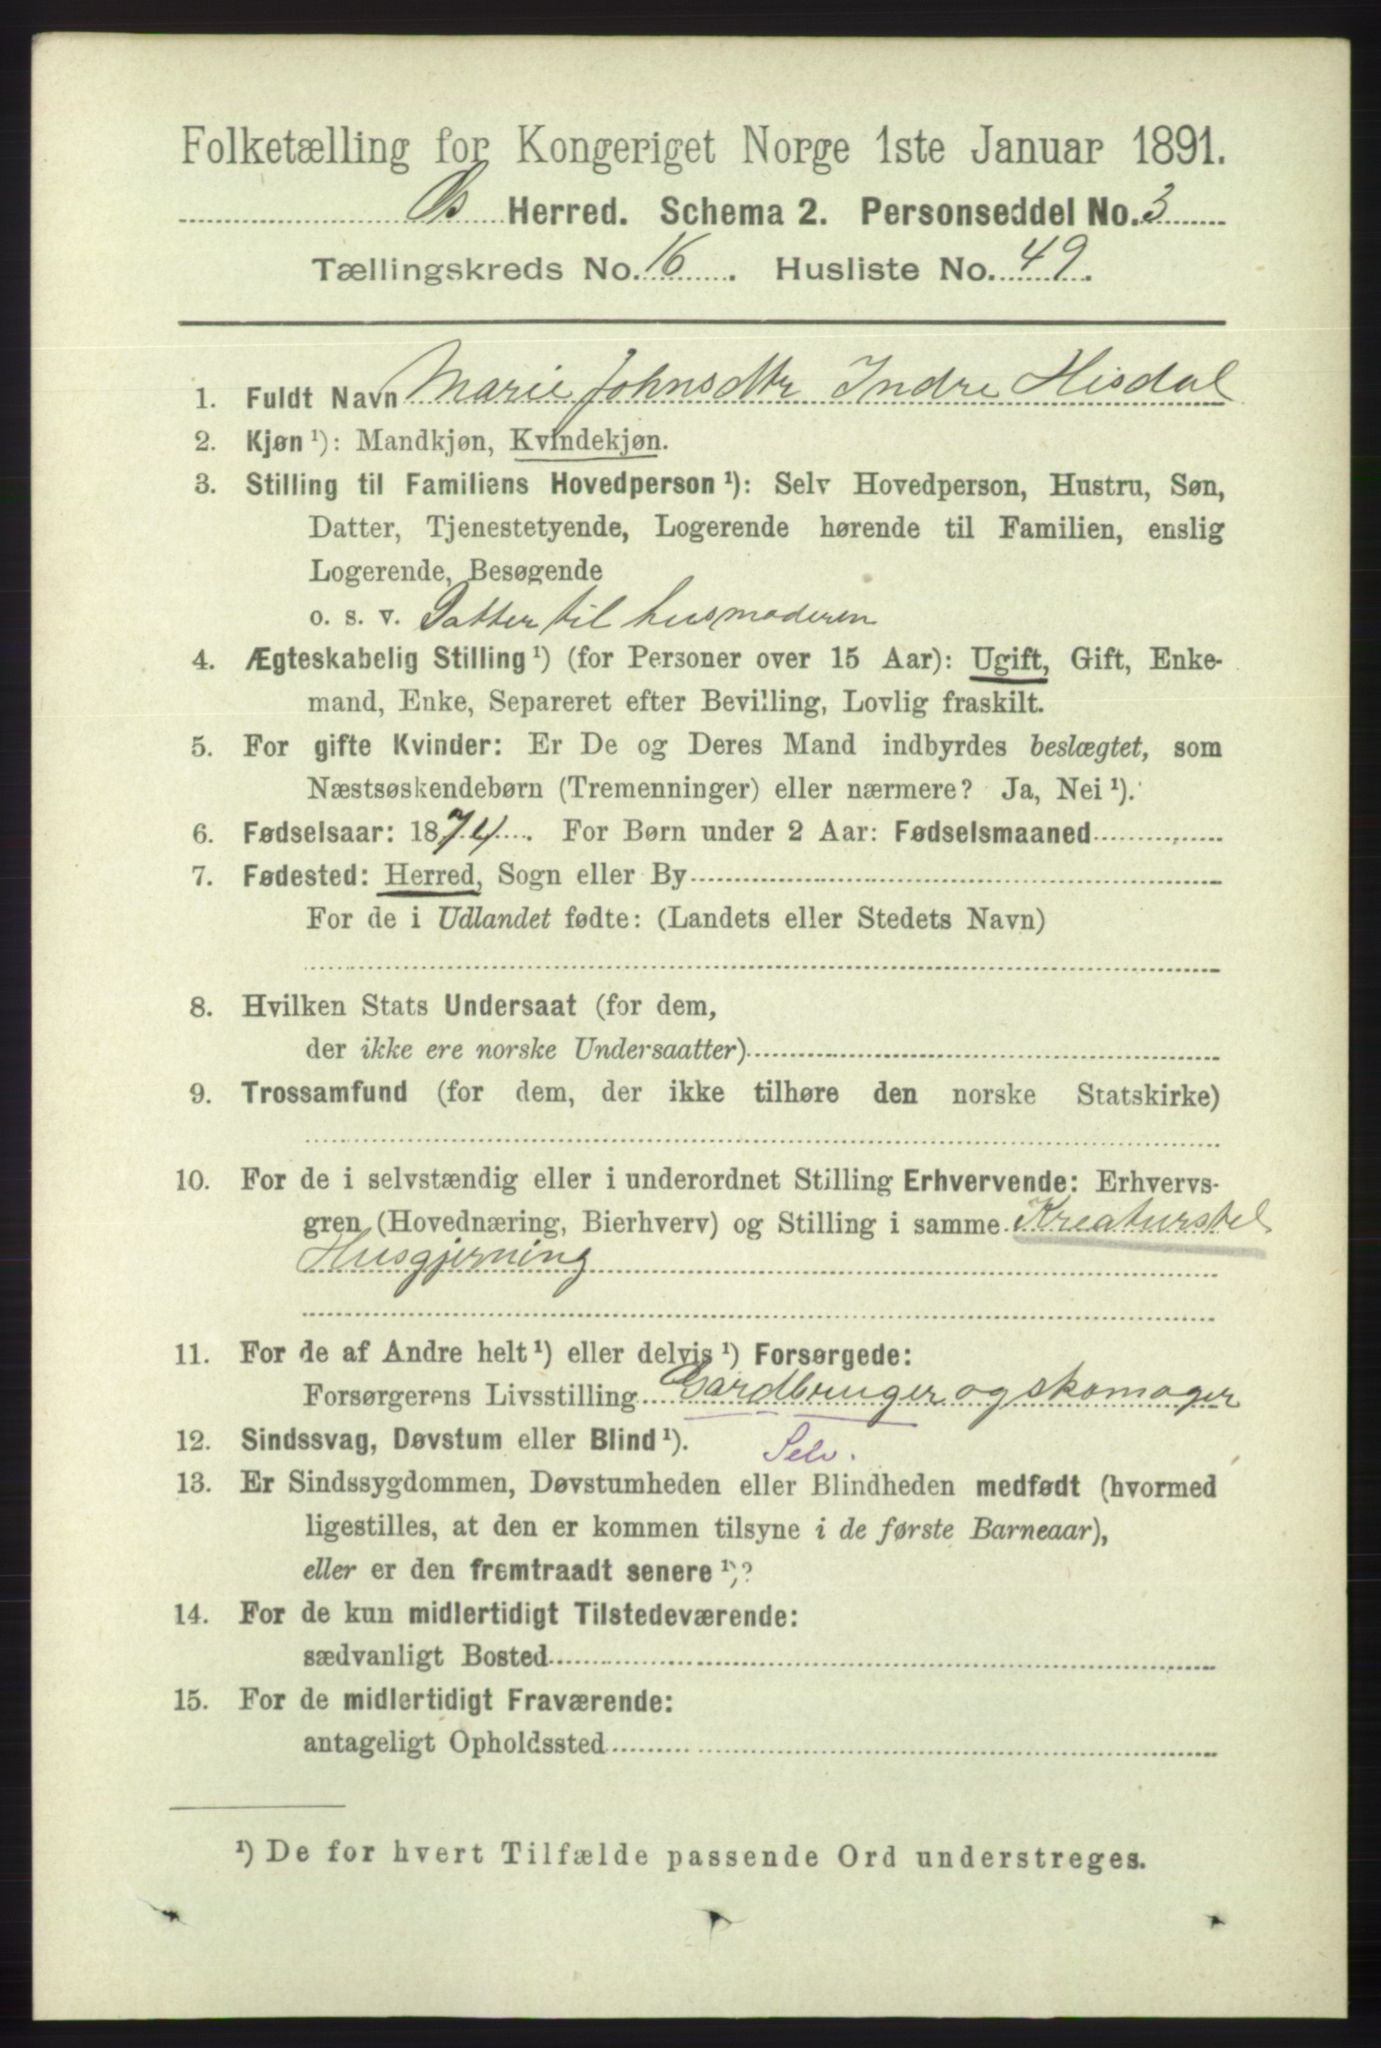 Folketælling for Kongeriget Norge 1ste Januar 1891.
Os Herred. Schema 2. Personseddel No. 3
Tællingskreds No. 16. Husliste No. 49.
1. Fuldt Navn Marie Johnsdtr Indre Hisdal
2. Kjøn ¹): Mandkjøn, Kvindekjøn.
3. Stilling til Familiens Hovedperson ¹): Selv Hovedperson, Hustru, Søn,
Datter, Tjenestetyende, Logerende hørende til Familien, enslig
Logerende, Besøgende
o. s. v. Datter til husmoderen
4. Ægteskabelig Stilling ¹) (for Personer over 15 Aar): Ugift, Gift, Enke-
mand, Enke, Separeret efter Bevilling, Lovlig fraskilt.
5. For gifte Kvinder: Er De og Deres Mand indbyrdes beslægtet, som
Næstsøskendebørn (Tremenninger) eller nærmere? Ja, Nei ¹).
6. Fødselsaar: 1874. For Børn under 2 Aar: Fødselsmaaned
7. Fødested: Herred, Sogn eller By
For de i Udlandet fødte: (Landets eller Stedets Navn)
8. Hvilken Stats Undersaat (for dem,
der ikke ere norske Undersaatter)
9. Trossamfund (for dem, der ikke tilhøre den norske Statskirke)
10. For de i selvstændig eller i underordnet Stilling Erhvervende: Erhvervs-
gren (Hovednæring, Bierhverv) og Stilling i samme Kreaturstel
Husgjerning
11. For de af Andre helt ¹) eller delvis ¹) Forsørgede:
Forsørgerens Livsstilling Gardbruger og skomager
12. Sindssvag, Døvstum eller Blind ¹). Selv.
13. Er Sindssygdommen, Døvstumheden eller Blindheden medfødt (hvormed
ligestilles, at den er kommen tilsyne i de første Barneaar),
eller er den fremtraadt senere ¹)?
14. For de kun midlertidigt Tilstedeværende:
sædvanligt Bosted
15. For de midlertidigt Fraværende:
antageligt Opholdssted
¹) De for hvert Tilfælde passende Ord understreges.